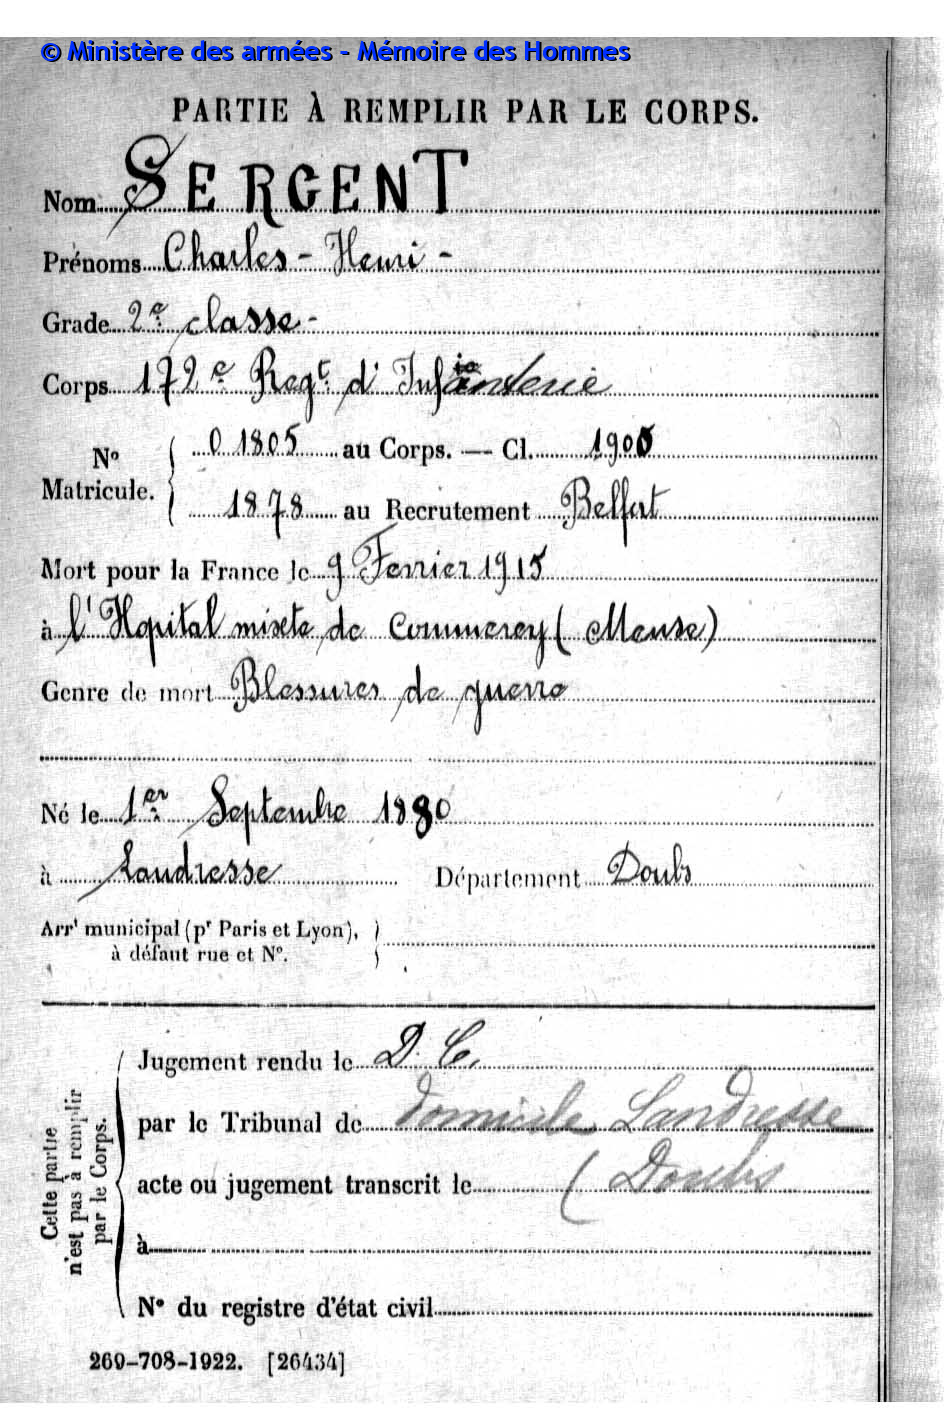 © Ministère des armées - Mémoire des Hommes
PARTIE À REMPLIR PAR LE CORPS.
Nom SERGENT
Prénoms Charles - Henri -
Grade 2e classe -
Corps 172e Regt d'Infanterie
No Matricule. 0 1805 au Corps. — Cl. 1900
1878 au Recrutement Belfort
Mort pour la France le 9 Fevrier 1915
à l'Hopital mixte de Commercy (Meuse)
Genre de mort Blessures de guerre
Né le 1er Septembre 1880
à Landresse Département Doubs
Arrt municipal (pr Paris et Lyon),
à défaut rue et No.
Cette partie n'est pas à remplir par le Corps.
Jugement rendu le D. C.
par le Tribunal de domicile Landresse
acte ou jugement transcrit le (Doubs
à
No du registre d'état civil
269-708-1922. [26434]